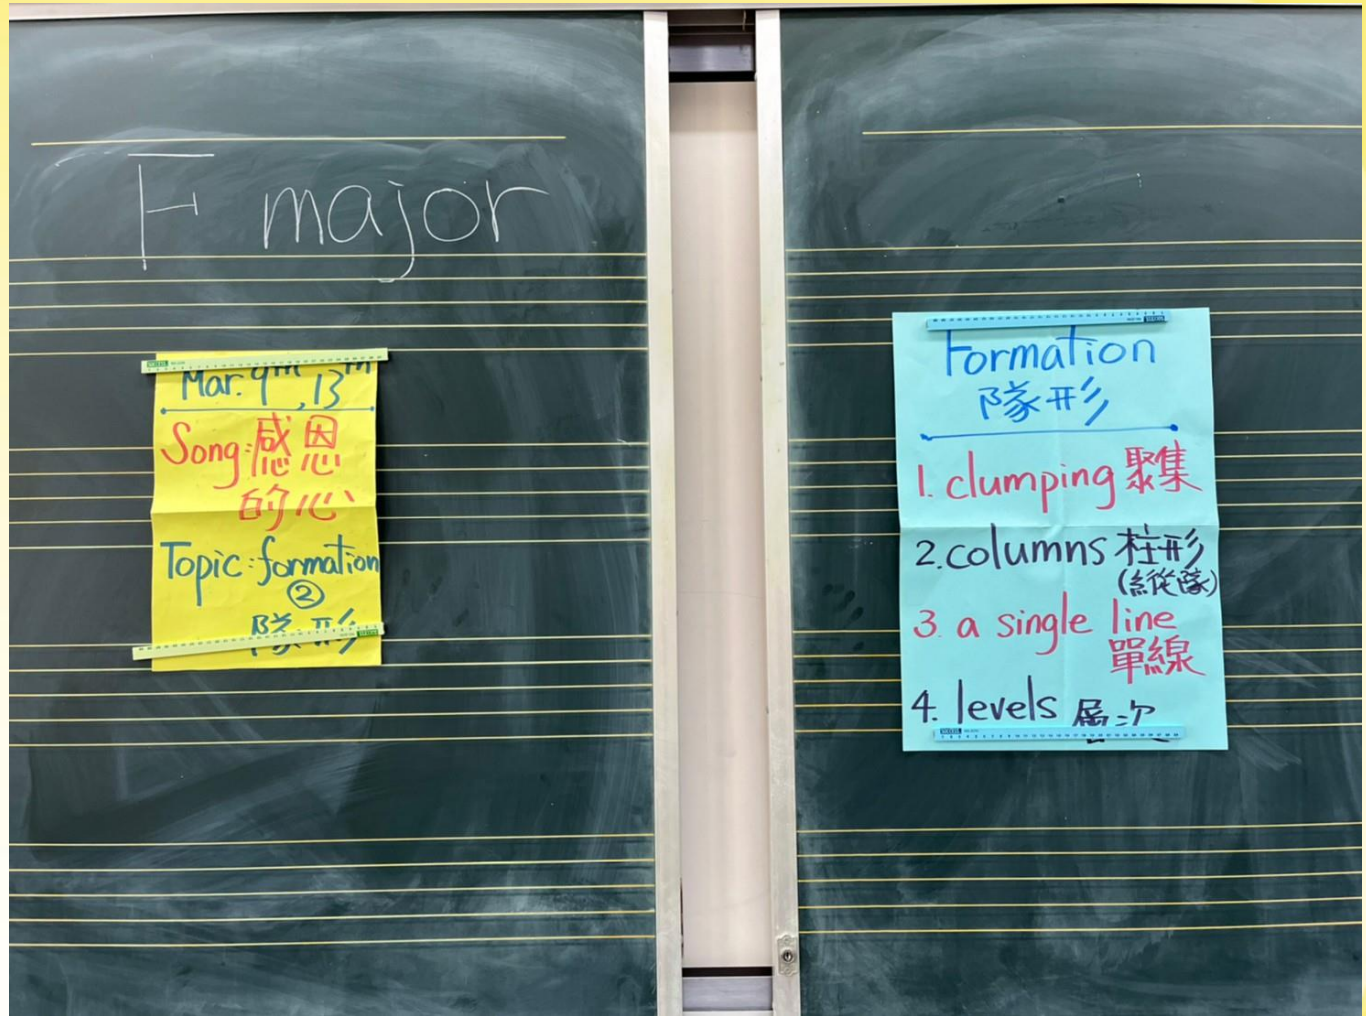 F major
Mar. 9th, 13th
Song: 感恩
的心
Topic: formation
②
隊形
Formation
隊形
1. clumping 聚集
2. columns 柱形
(縱隊)
3. a single line
單線
4. levels 層次